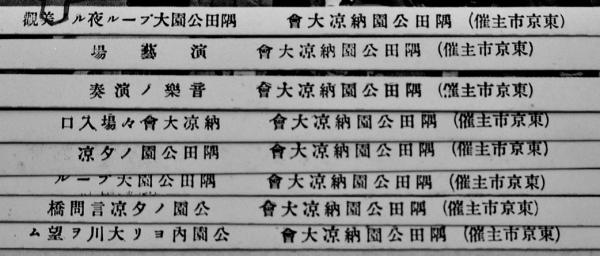 (東京市主催) 隅田公園納凉大會 隅田公園大プール夜ルノ美觀
(東京市主催) 隅田公園納凉大會 演藝場
(東京市主催) 隅田公園納凉大會 音樂ノ演奏
(東京市主催) 隅田公園納凉大會 納凉大會々場入口
(東京市主催) 隅田公園納凉大會 隅田公園ノ夕凉
(東京市主催) 隅田公園納凉大會 隅田公園大プール
(東京市主催) 隅田公園納凉大會 公園ノ夕凉言問橋
(東京市主催) 隅田公園納凉大會 公園內ヨリ大川ヲ望ム